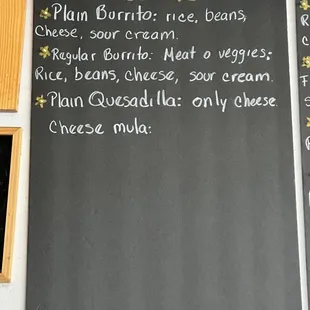 Plain Burrito: rice, beans,
Cheese, sour cream.
Regular Burrito: Meat o veggies:
Rice, beans, cheese, sour cream.
Plain Quesadilla: only cheese.
Cheese mula: